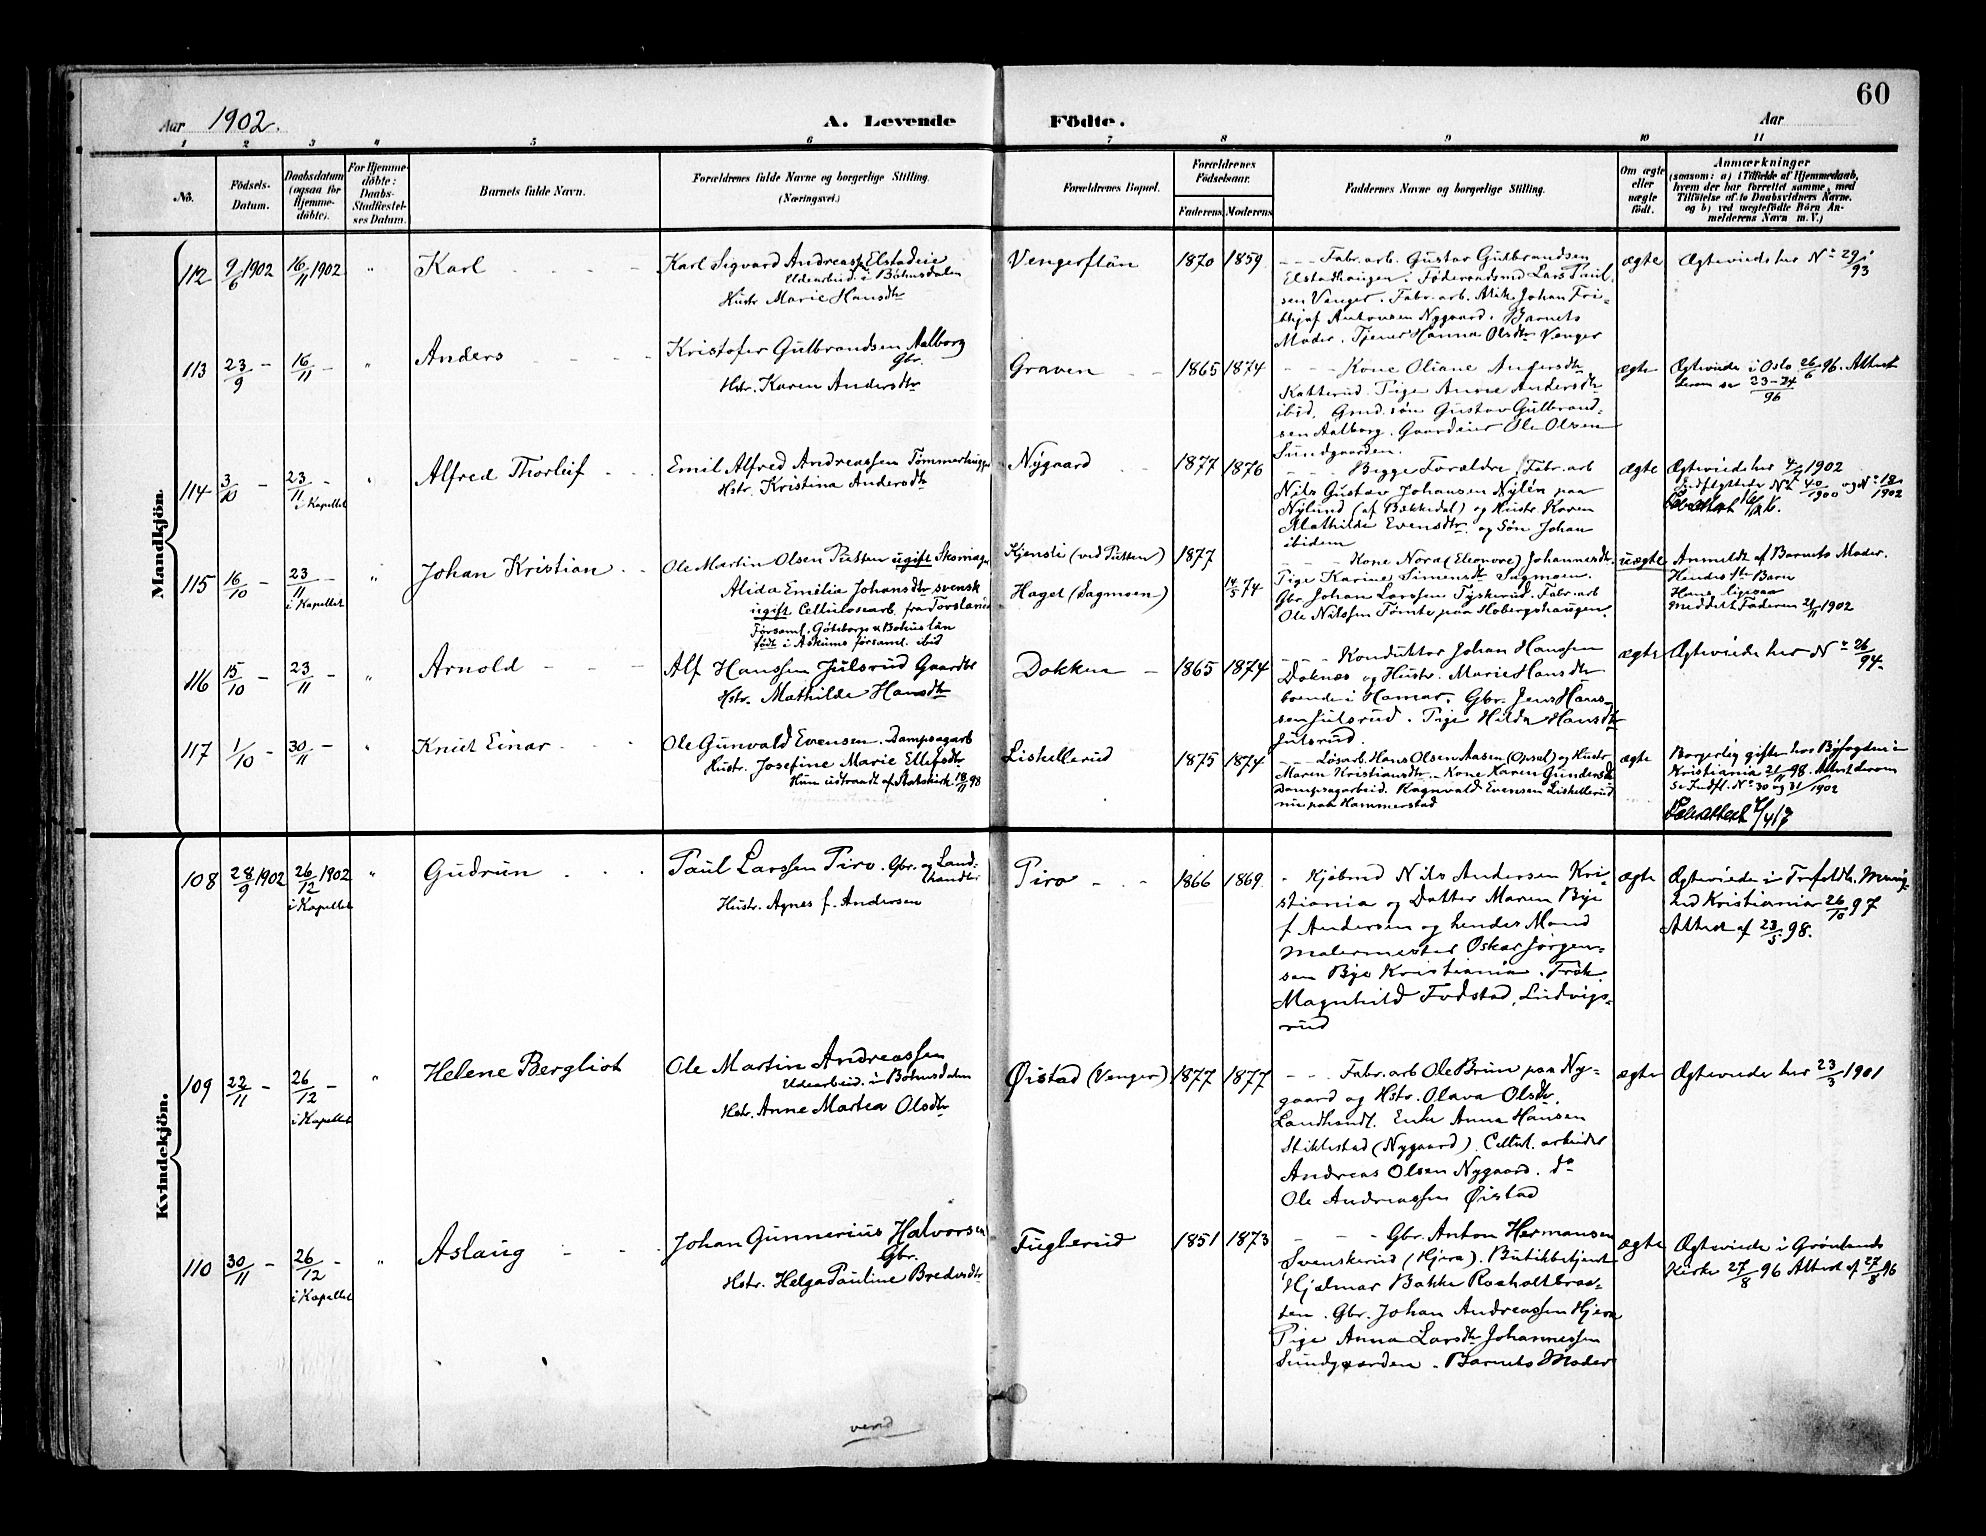 60
Aar 1902. A. Levende Födte. Aar
1 2 3 4 5 6 7 8 9 10 11
No.
Födsels-Datum.
Daabsdatum (ogsaa for Hjemmedöbte).
For Hjemmedöbte: Daabs-Stadfæstelses Datum.
Barnets fulde Navn.
Forældrenes fulde Navne og borgerlige Stilling.
(Næringsvei.)
Forældrenes Bopæl.
Forældrenes Födselsaar.
Faderens Moderens
Faddernes Navne og borgerlige Stilling.
Om ægte eller uægte födt.
Anmærkninger
(saasom: a) i Tilfælde af Hjemmedaab, hvem der har forrettet samme, med Tilföielse af to Daabsvidners Navne, og b) ved uægtefödte Börn Anmelderens Navn m. V.)
Mandkjön.
112 9/6 1902 16/11 1902 "
Karl
Karl Sigvard Andreass. Elstadeie
Udearbeid. i Bøhnsdalen
Hustr Marie Hansdtr
Vengerflån
1870 1859
Fabr. arb. Gustav Gulbrandsen
Elstadhaugen. Føderaadsmd Lars Paul
sen Venger. Fabr. arb. Johan Fri-
thjof Antonsen Nygaard. Barnets
Moder. Tjener Hanna Olsdtr Venger
ægte
Ægteviedes her No 29/93
113 23/9 - 16/11 - "
Anders
Kristofer Gulbrandsen Aalborg
Gbr.
Hstr. Karen Andersdtr
Graven
1865 1874
Kone Oliane Andersdtr
Katterud. Pige Anne Andersdtr
ibid. Grmd. søn Gustav Gulbrand-
sen Aalborg. Gaardeier Ole Olsen
Sundgaarden.
ægte
Ægteviede i Oslo 26/6 96. Attest
derom se 23-24/96
114 3/10 - 23/11 - i Kapellet "
Alfred Thorleif
Emil Alfred Andreassen Tømmerhugger
Hstr. Kristina Andersdtr
Nygaard
1877 1876
Begge Forældre. Fabr. arb
Nils Gustav Johansen Nylén paa
Nylund (af Bækkedal) og Hustr. Karen
Mathilde Evensdtr. og Søn Johan
ibidem
ægte
Ægteviedes her 4/ 1902
Indflyttede No 40/1900 og No 18/1902
115 16/10 - 23/11 - i Kapellet "
Johan Kristian
Ole Martin Olsen Putten ugift Skomager
Alida Emilia Johansdtr svensk
ugift Cellulosearb. fra Torslanda
Församl. Göteborgs & Bohus län
født i Askums församl. ibid
Kjensli (ved Putten) 1877
Haget (Sagmoen) 14/5 74
Kone Nora (Eleonore) Johannesdtr.
Pige Karine Simensdtr Sagmoen.
Gbr Johan Larssen Tyskerud. Fabr. arb
Ole Nilssen Tømte paa Hobergshaugen.
uægte
Anmeldt af Barnets Moder.
Hendes 1te Barn
Hans ligesaa
Meddelt Faderen 21/11 1902
116 15/10 - 23/11 - "
Arnold
Alf Hanssen Julsrud Gaardbr
Hstr. Mathilde Hansdtr
Dokken
1865 1874
Konduktør Johan Hanssen
Doknæs og Hustr. Marie Hansdtr
boende i Hamar. Gbr. Jens Hans-
sen Julsrud. Pige Hilda Hansdtr
Julsrud.
ægte
Ægteviede her No 26/94.
117 1/10 - 30/11 - "
Knut Einar
Ole Gunvald Evensen. Dampsagarb
Hustr. Josefine Marie Ellefsdtr
Hun udtraadt af Statskirk 18/11 98
Liskellerud
1875 1874
Løsarb. Hans Olsen Aasen (Opsal) og Hustr
Maren Kristiansdtr. Kone Karen Gundersdtr
Dampsagarbeid. Ragnvald Evensen Liskellerud
nu paa Hammerstad
ægte
Borgerlig gifte hos Byfogden i
Kristiania 21/11 98. Attest derom
se Indfl. No 30 og 31/1902
Kvindekjön.
108 28/9 1902 26/12 1902 i Kapellet "
Gudrun
Paul Larssen Piro. Gbr. og Land-
handler
Hustr. Agnes f. Andersen
Piro
1866 1869
Kjøbmd Nils Andersen Kri-
stiania og Datter Maren Bye
f Andersen og hendes Mand
Malermester Oskar Jørgen-
sen Bye Kristiania. Frøk.
Magnhild Fodstad, Ludvigs-
rud
ægte
Ægteviede i Trefoldh. Menig-
hed Kristiania 26/10 97
Attest af 23/5 98.
109 22/11 - 26/12 - i Kapellet "
Helene Bergliot
Ole Martin Andreassen
Udearbeid. i Bøhnsdalen
Hstr. Anne Martea Olsdtr
Øistad (Venger)
1877 1877
Fabr. arb Ole Brun paa Ny-
gaard og Hstr. Olava Olsdtr.
Landhandl. Enke Anna Hansen
Stiklestad (Nygaard). Cellul. arbeider
Andreas Olsen Nygaard. do
Ole Andreassen Øistad
ægte
Ægteviede her 23/3 1901
110 30/11 - 26/12 - i Kapellet "
Aslaug
Johan Gunnerius Halvorsen
Gbr.
Hstr. Helga Pauline Bredesdtr
Fuglerud
1851 1873
Gbr. Anton Hermansen
Svenskerud (Hjera). Butikbetjent
Hjalmar Bakke Raaholtbraa-
ten. Gbr. Johan Andreassen Hjera
Pige Anna Larsdtr Johannessen
Sundgaarden. Barnets Moder
ægte
Ægteviede i Grønlands
Kirke 27/8 96 Attest af 27/8 96
vend